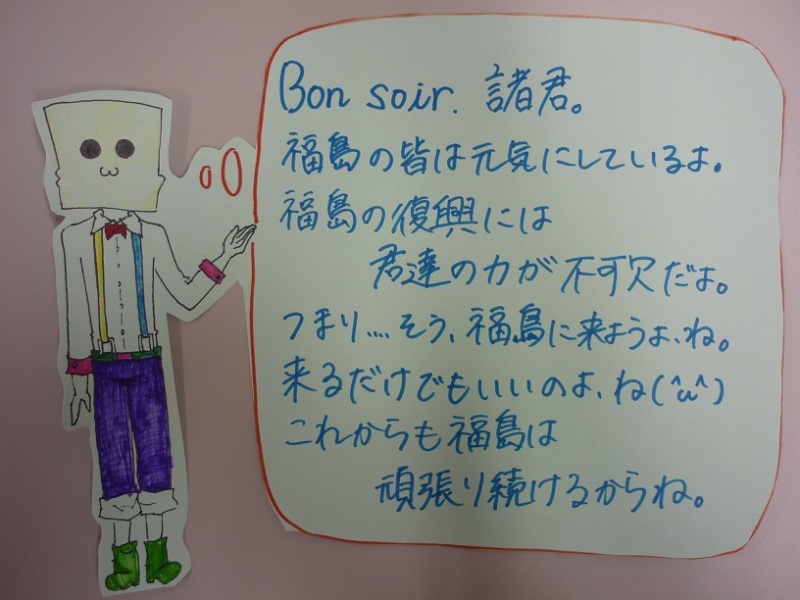 Bon soir. 諸君。
福島の皆は元気にしているよ。
福島の復興には
君達の力が不可欠だよ。
つまり....そう、福島に来ようよ、ね。
来るだけでもいいのよ、ね(^ω^)
これからも福島は
頑張り続けるからね。